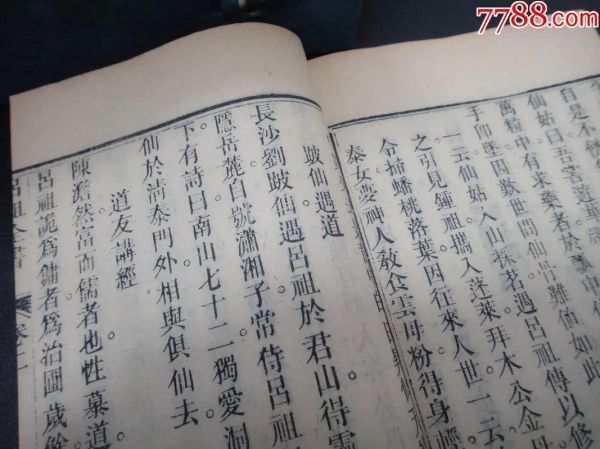 7788.com
自是不
仙姑曰吾善蓬萊
萬粒中有求藥者於瓢中
手即墜因歎世間仙官難值如此
一云仙姑入山採茗遇呂祖傳以修
之引見鍾祖攜入蓬萊拜木公金母
令掃蟠桃落葉因往來人世一云
秦女夢神人教食雲母粉得身輕
跛仙遇道
長沙劉跛仙遇呂祖於君山得靈
隱岳麓自號瀟湘子常侍呂祖
下有詩曰南山七十二獨愛洞
仙於清秦門外相與俱仙去
道友講經
陳澹然富而儒者也性慕道
呂祖詭為傭者為治圃歲餘
呂祖全書
卷二